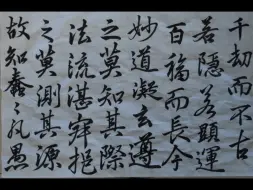 千劫而不古
若隱若顯運
百福而長今
妙道凝玄遵
之莫知其際
法流湛寂挹
之莫測其源
故知蠢蠢凡愚